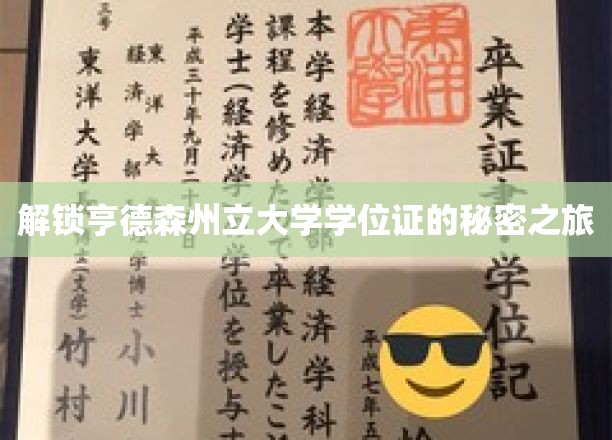 解锁亨德森州立大学学位证的秘密之旅
卒業証書・学位記
東洋大学
平成七年五
本学経済学部経済学科
課程を修めて卒業したこ
学士(経済学 学位を授与
平成三十年九月二十日
東洋大
経済学部 学博士 小川
東洋大学 (文学) 竹村
号